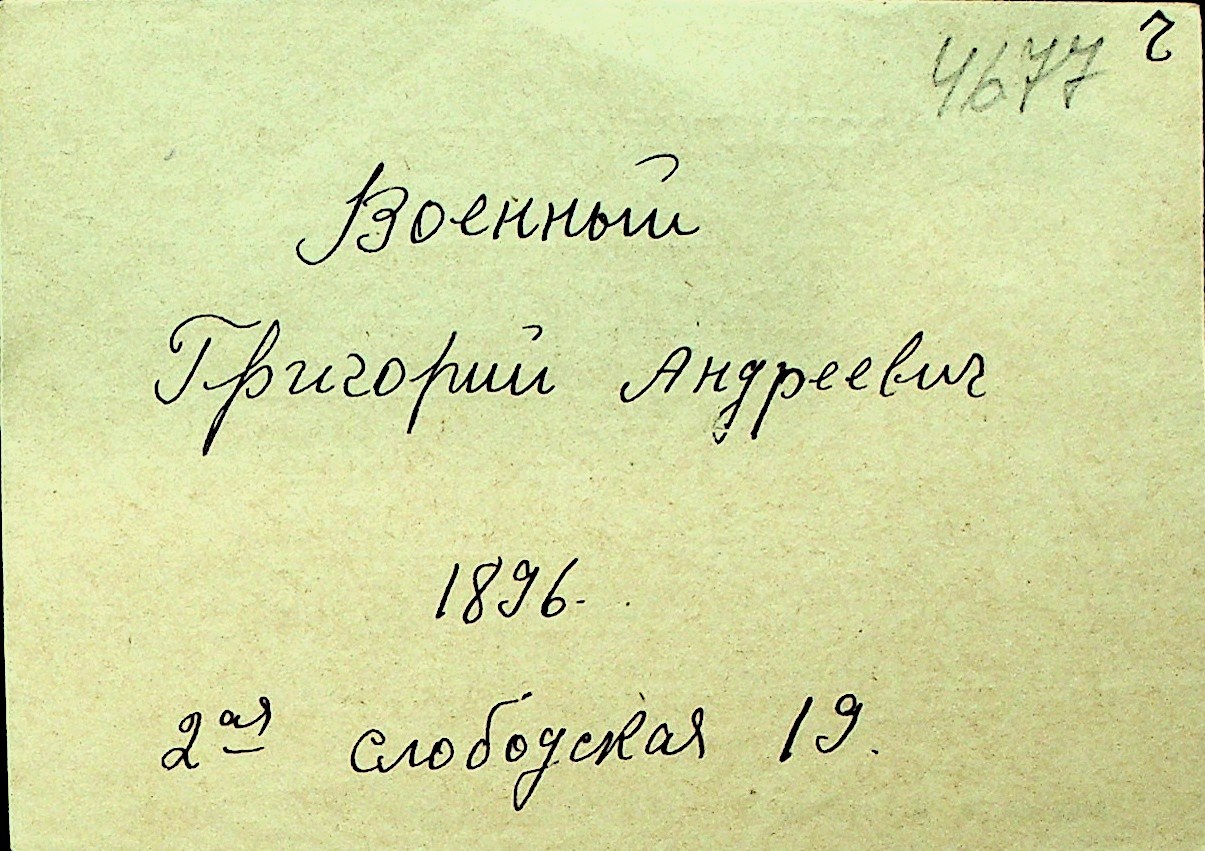 4677
Военный
Григорий Андреевич
1896.
2ая слободская 19.